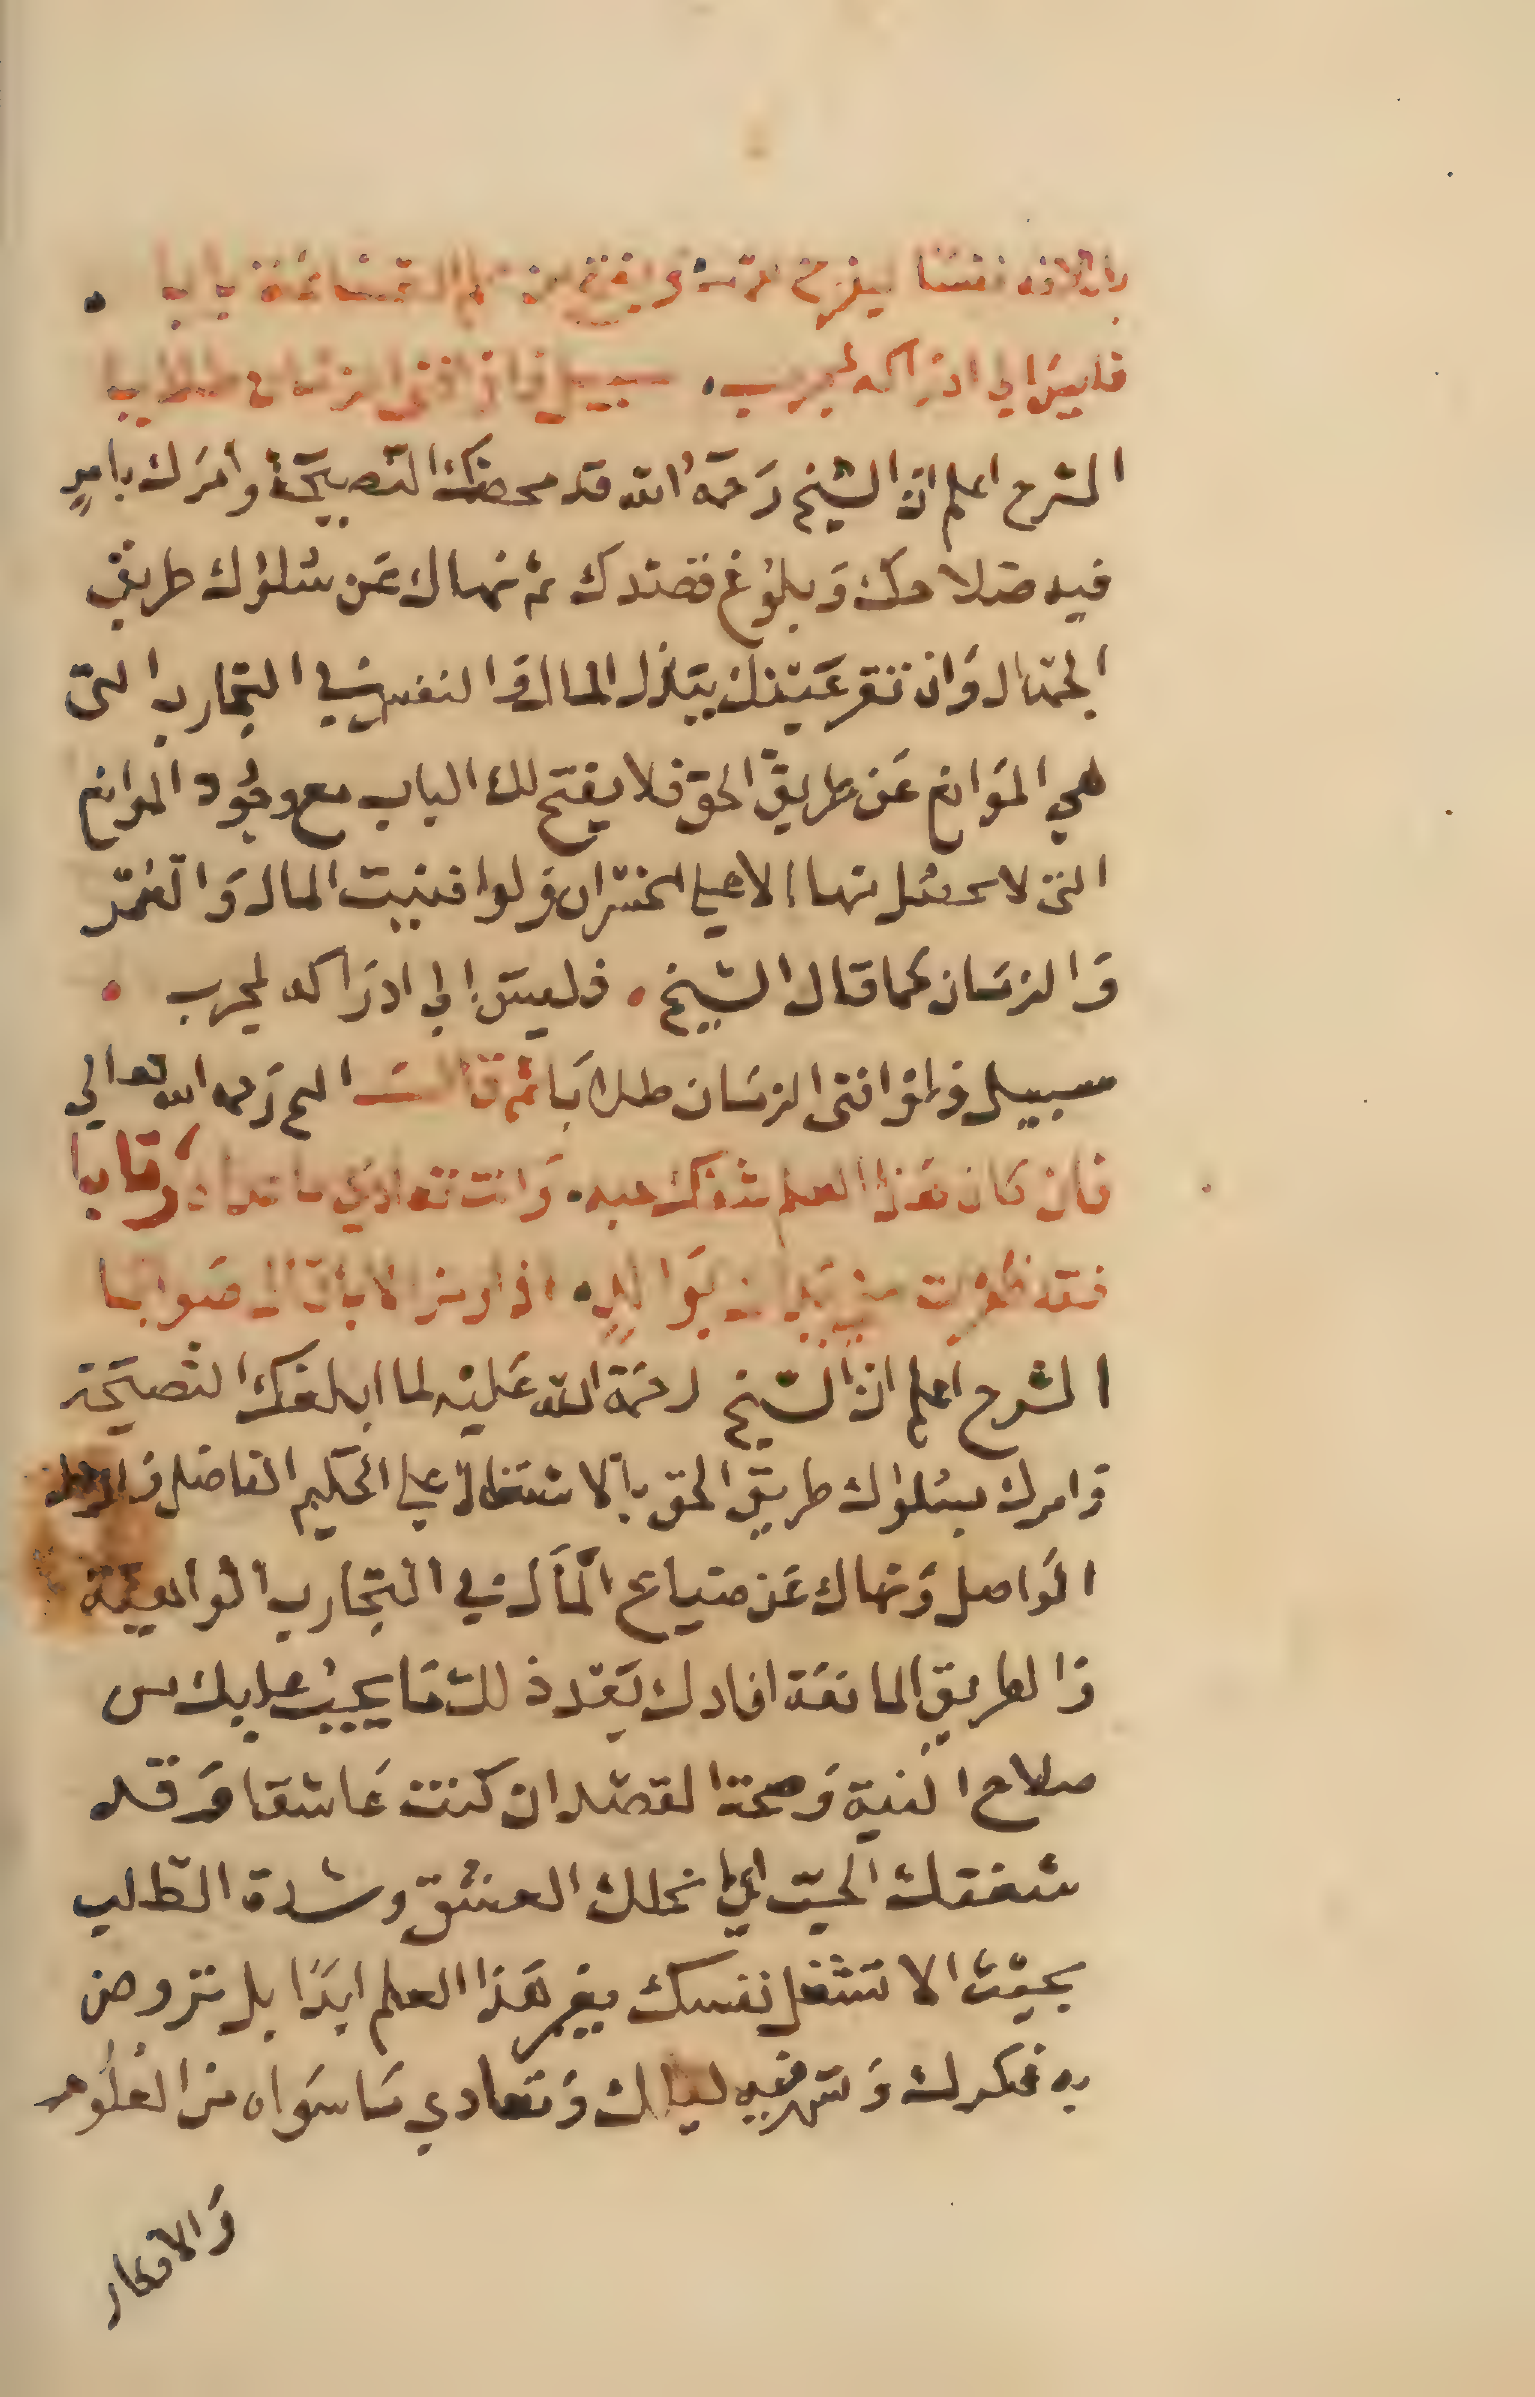 فليس الي ادراكه لمجرب سبيل فلو افني الزمان طلابا
الشرح اعلم ان الشيخ رَحمَهُ الله قد محضك النصيحَة وأمَرَك بامرٍ
فيه صَلاحك وَبلوغ قصدك ثم نهاك عَن سُلوُك طريق
الجهال وَان تقر عَينك ببَذل المال وَالنفس في التجارب التي
هي المَوانع عَن طريق الحق فلا يفتح لك الباب مع وجُود الموانع
التي لا يحصُل منها الا علي الخسران وَلو افنيت المال وَالعُمر
وَالزمَان كما قال الشيخ . فليسَ الي ادرَاكه لمجرب .
سبيل وَلوَ افنى الزمَان طلابَا ثم قال الشيخ رَحمه الله تعالي
فان كان هَذا العلم شفك حبه . وَانت تعادي ما عداه رقابا
فقد ظفرت اذا رمز الابا قال صَوابا
الشرح اعلم ان الشيخ رحمَة الله عَليه لما ابلغك النصيحَة
وَامرك بسُلوُك طريق الحق بالاشتغال علي الحكيم الفاضل
الوَاصل وَنهاك عَن ضياع المَال في التجارب الواهيَة
وَالطريق المانعَة افادك بَعد ذلك مَا يجبُ عليك من
صلاح النية وَصحة القصد ان كنت عَاشقا وَقد
شغفك الحبّ اي نحلك العشق وشدة الطلب
بحيث الا تشغل نفسك بغير هَذا العلم ابدًا بل تروض
به فكرك وَتسهر فيه لياليك وَتعادي مَا سوَاه من العُلُوم
وَالافكار